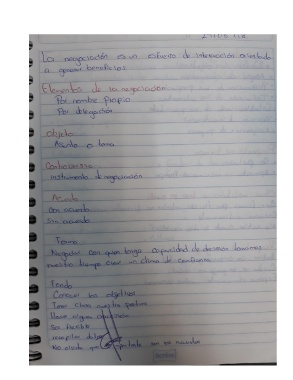 La negociación es un esfuerzo de interacción orientado
a generar beneficios
Elementos de la negociación
Por nombre Propio
Por delegación
Objeto
Asunto o tema
instrumento de negociación
Acuerdo
Con acuerdo
Sin acuerdo
Forma
Negociar con quien tenga capacidad de decisión
nuestro tiempo crear un clima de confianza
Fondo
Conocer los objetivos
Tener clara nuestra postura
Llevar alguna
Ser flexible
recopilar datos
No olvide que lo importante son los acuerdos